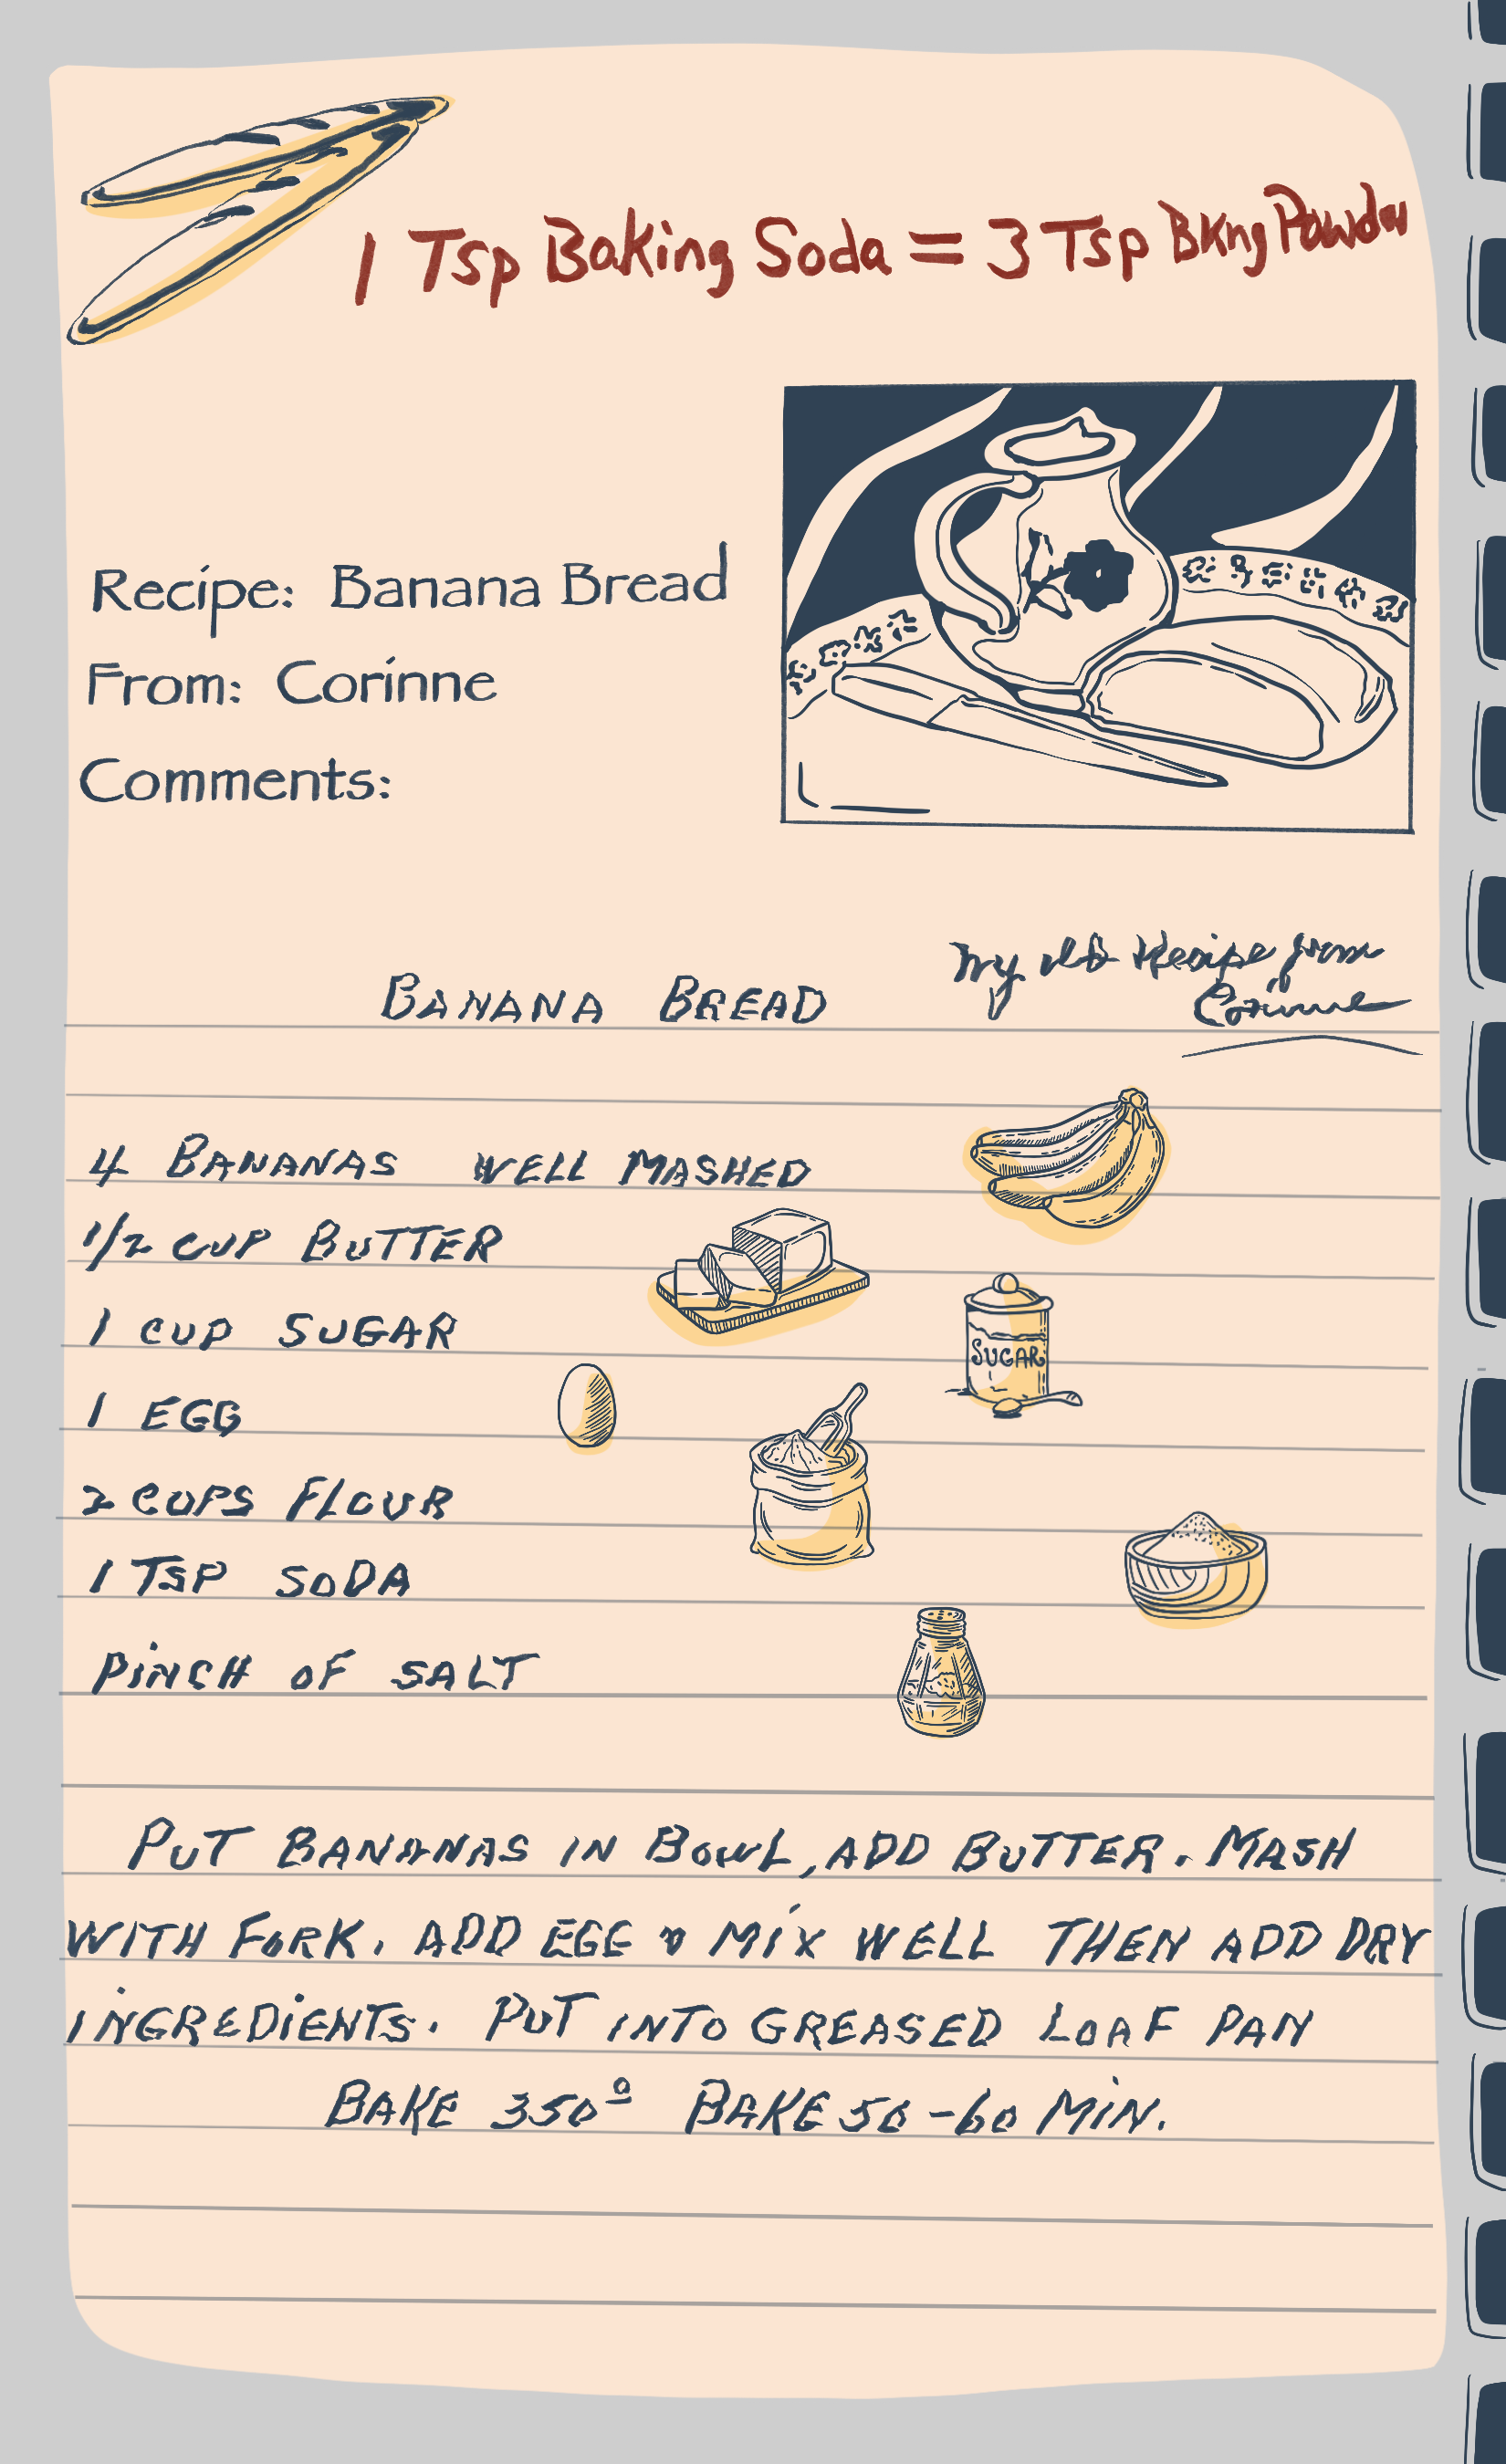 1 Tsp Baking Soda = 3 Tsp Bkng Powder
Recipe: Banana Bread
From: Corinne
Comments:
My Recipe from
Corinne
BANANA BREAD
4 BANANAS WELL MASHED
1/2 CUP BUTTER
1 CUP SUGAR
SUGAR
1 EGG
2 CUPS FLOUR
1 TSP SODA
PINCH OF SALT
PUT BANANAS IN BOWL, ADD BUTTER. MASH
WITH FORK. ADD EGG & MIX WELL THEN ADD DRY
INGREDIENTS. PUT INTO GREASED LOAF PAN
BAKE 350° BAKE 50-60 MIN.